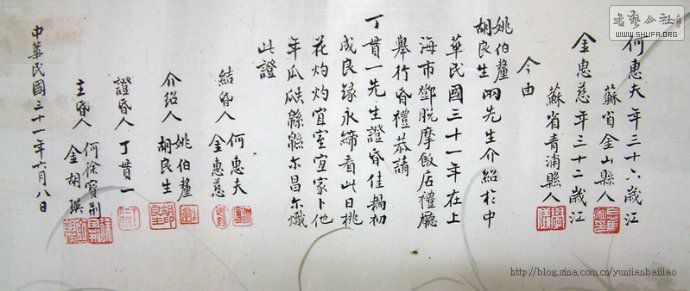 何惠夫年三十六歲江
蘇省金山縣人
金惠慈年三十二歲江
蘇省青浦縣人
今由
姚伯釐
胡良生
兩先生介紹於中
華民國三十一年在上
海市鄧脫摩飯店禮廳
舉行昏禮恭請
丁貫一先生證昏佳耦初
成良緣永締看此日桃
花灼灼宜室宜家卜他
年瓜瓞緜緜尔昌尔熾
此證
結昏人
何惠夫
金惠慈
介紹人
姚伯釐
胡良生
證昏人丁貫一
主昏人
何徐寶
金胡瑛
中華民國三十一年六月八日
WWW.SHUFA.ORG
http://blog.sina.com.cn/yunjianbaijiao